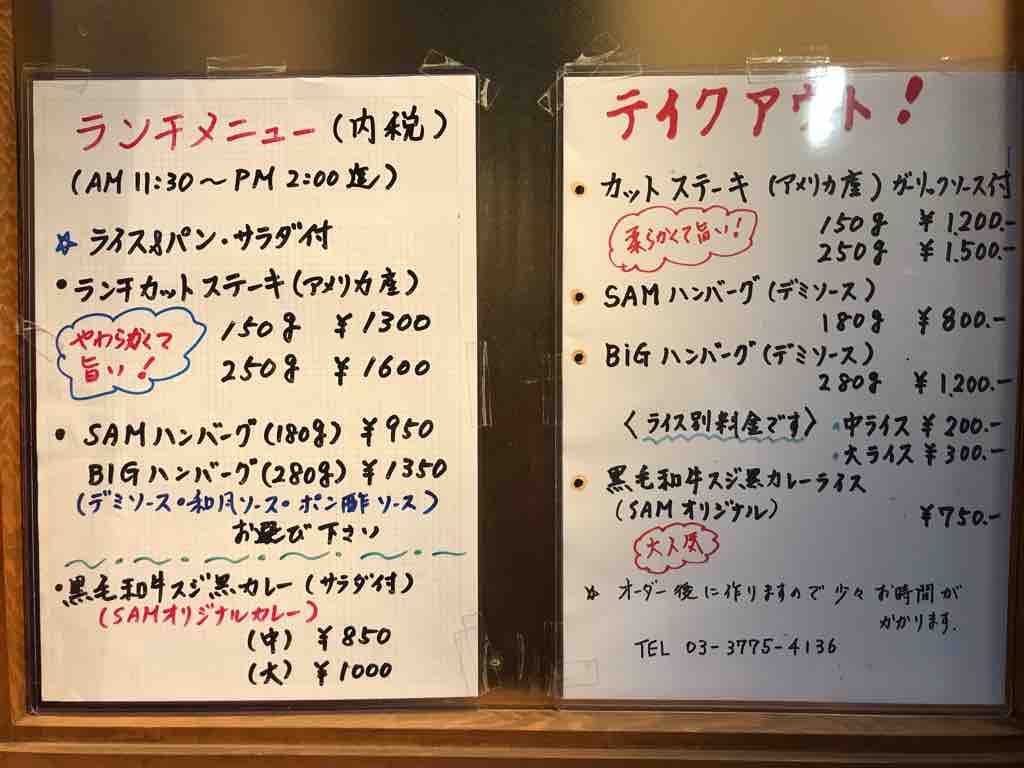 ランチメニュー(内税)
(AM 11:30〜PM 2:00迄)
☆ ライス&パン・サラダ付
・ランチカットステーキ(アメリカ産)
やわらかくて
旨い!
150g ¥1300
250g ¥1600
・SAMハンバーグ(180g) ¥950
BIGハンバーグ(280g) ¥1350
(デミソース・和風ソース・ポン酢ソース)
お選び下さい
・黒毛和牛スジ黒カレー(サラダ付)
(SAMオリジナルカレー)
(中) ¥850
(大) ¥1000
テイクアウト!
・カットステーキ(アメリカ産)ガーリックソース付
柔らかくて旨い!
150g ¥1,200.-
250g ¥1,500.-
・SAMハンバーグ(デミソース)
180g ¥800.-
・BiGハンバーグ(デミソース)
280g ¥1,200.-
〈ライス別料金です〉・中ライス ¥200.-
・大ライス ¥300.-
・黒毛和牛スジ黒カレーライス
(SAMオリジナル)
¥750.-
大人気
☆ オーダー後に作りますので少々お時間が
かかります.
TEL 03-3775-4136